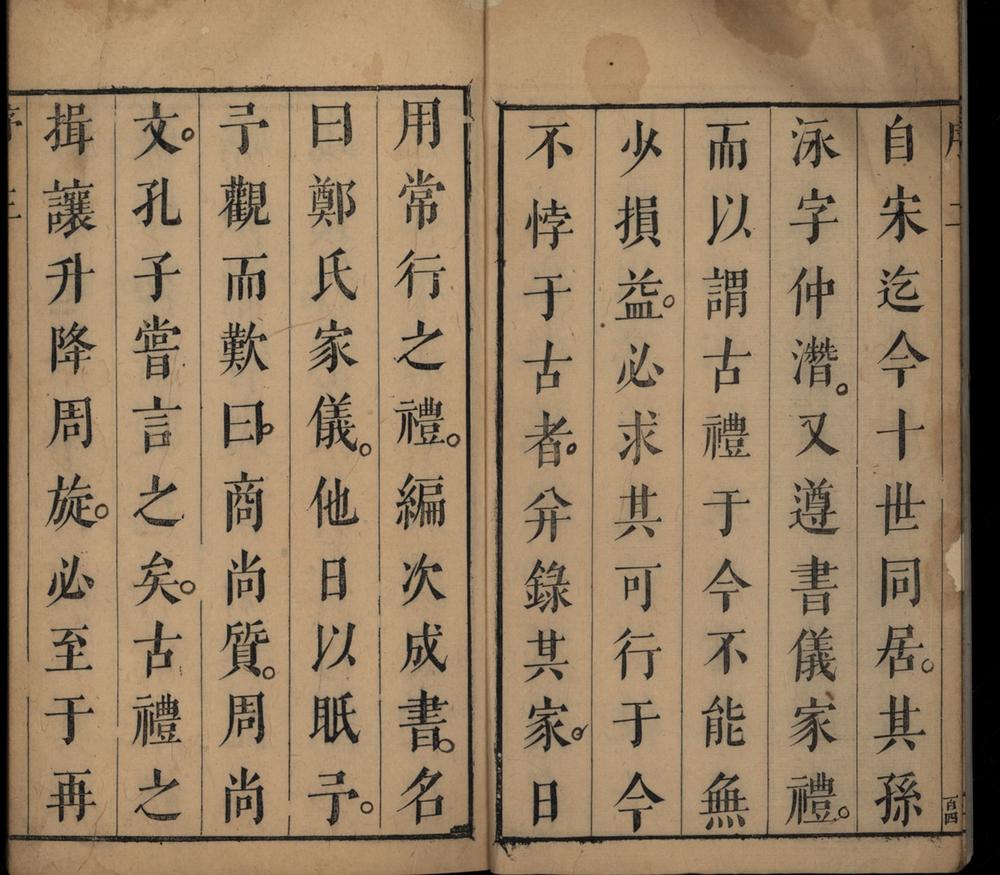 序 二
自宋迄今十世同居。其孫
泳字仲濳。又遵書儀家禮。
而以謂古禮于今不能無
少損益。必求其可行于今
不悖于古者。并錄其家。日
百四
用常行之禮。編次成書。名
曰鄭氏家儀。他日以眂予。
予觀而歎曰。商尚質。周尚
文。孔子嘗言之矣。古禮之
揖讓升降周旋。必至于再
序 三